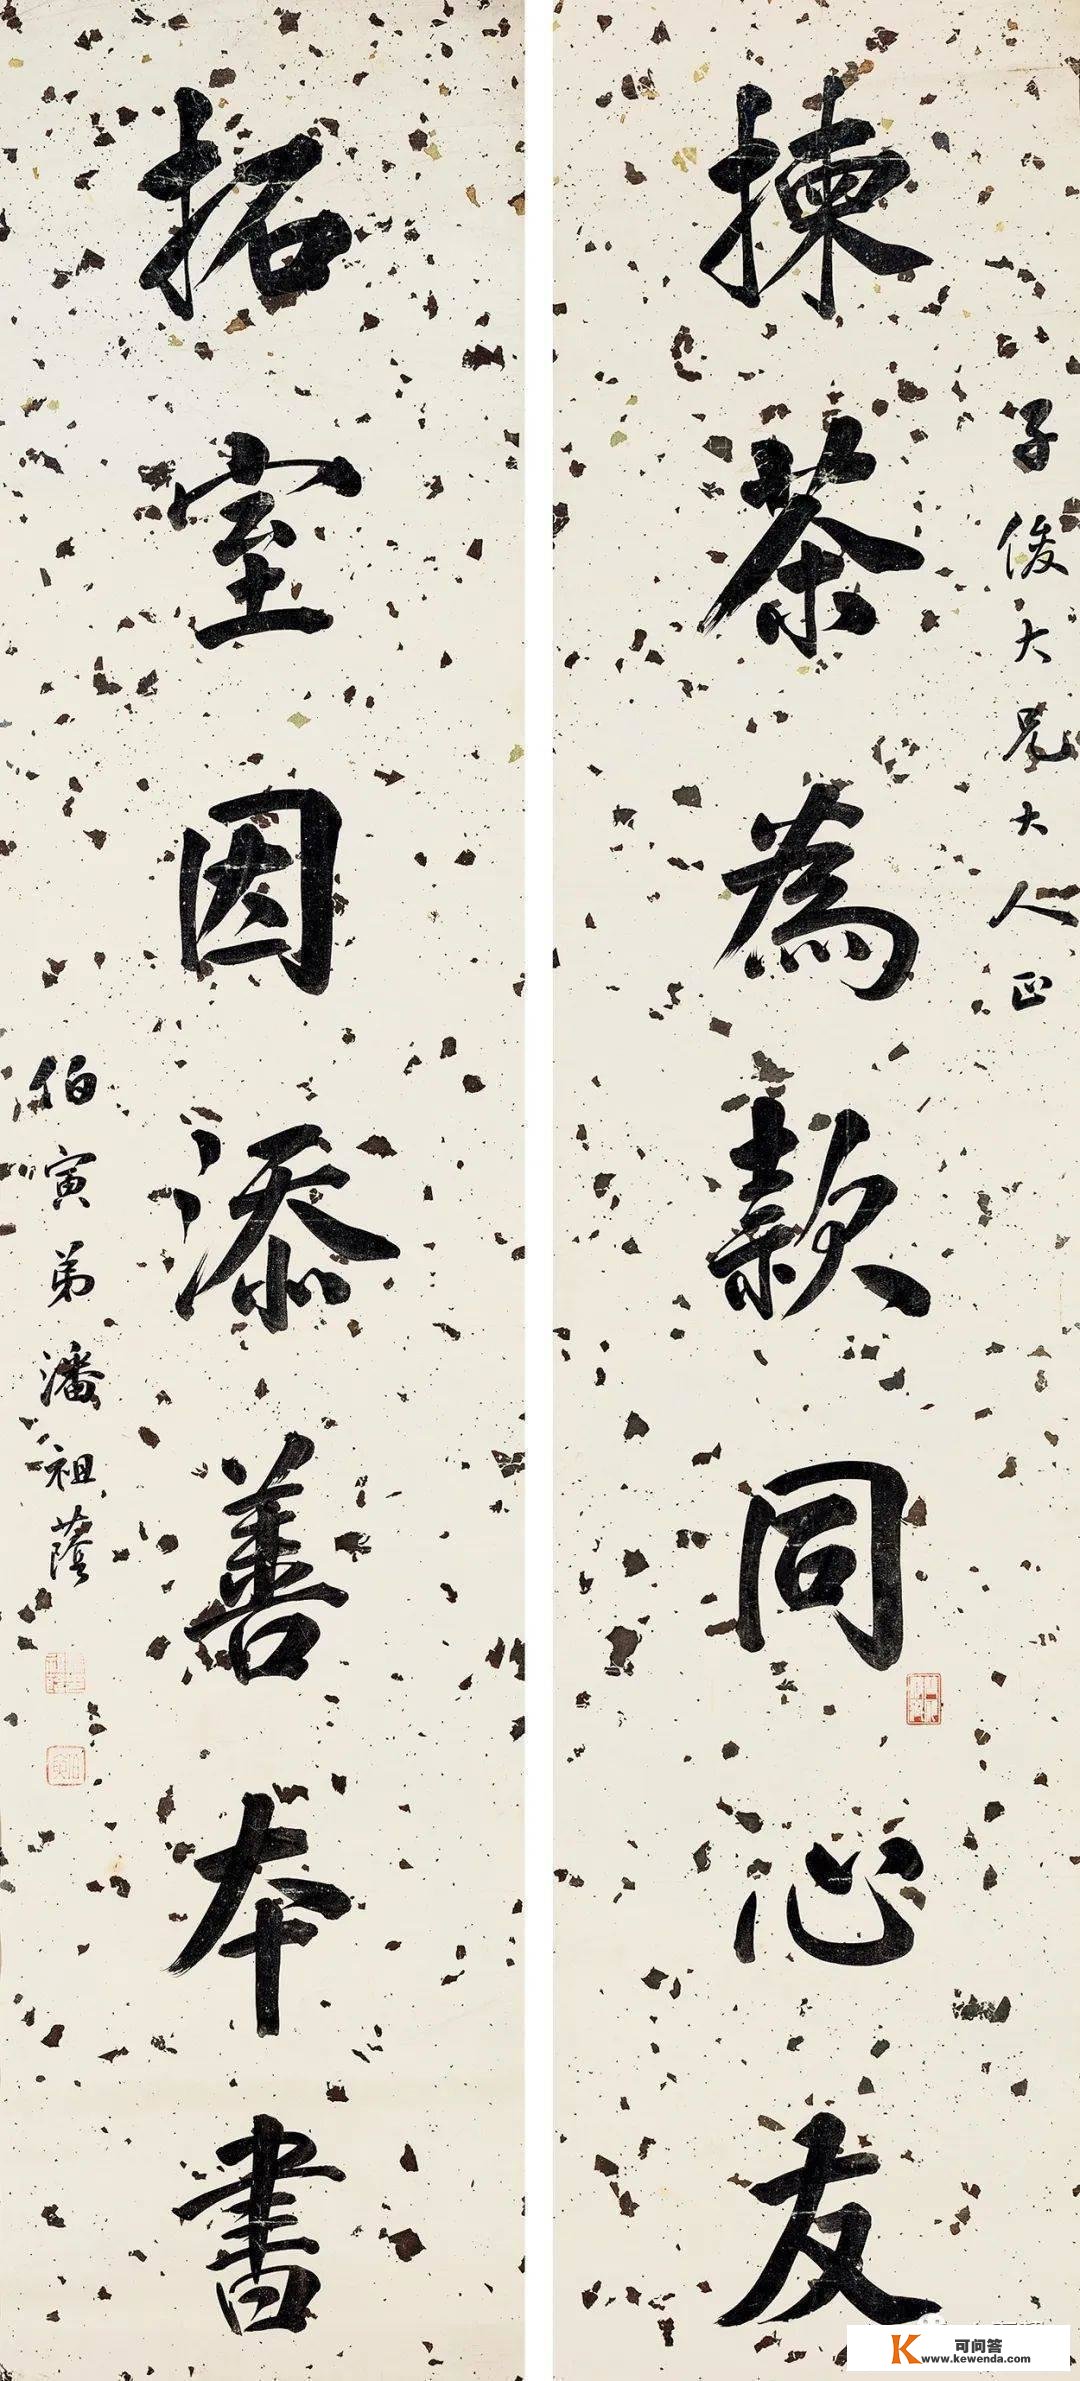 子俊大兄大人正
揀茶為款同心友
拓室因添善本書
伯寅弟潘祖蔭
可问答
www.kewenda.com